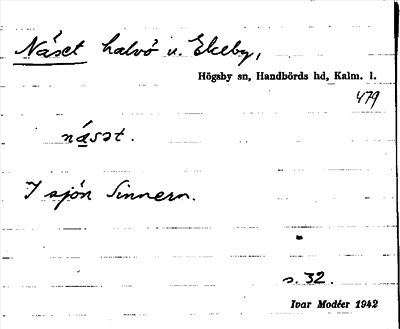 Näset halvö u. Ekeby,
Högsby sn, Handbörds hd, Kalm. l.
479
näsət.
I sjön Sinnern.
s. 32.
Ivar Modéer 1942